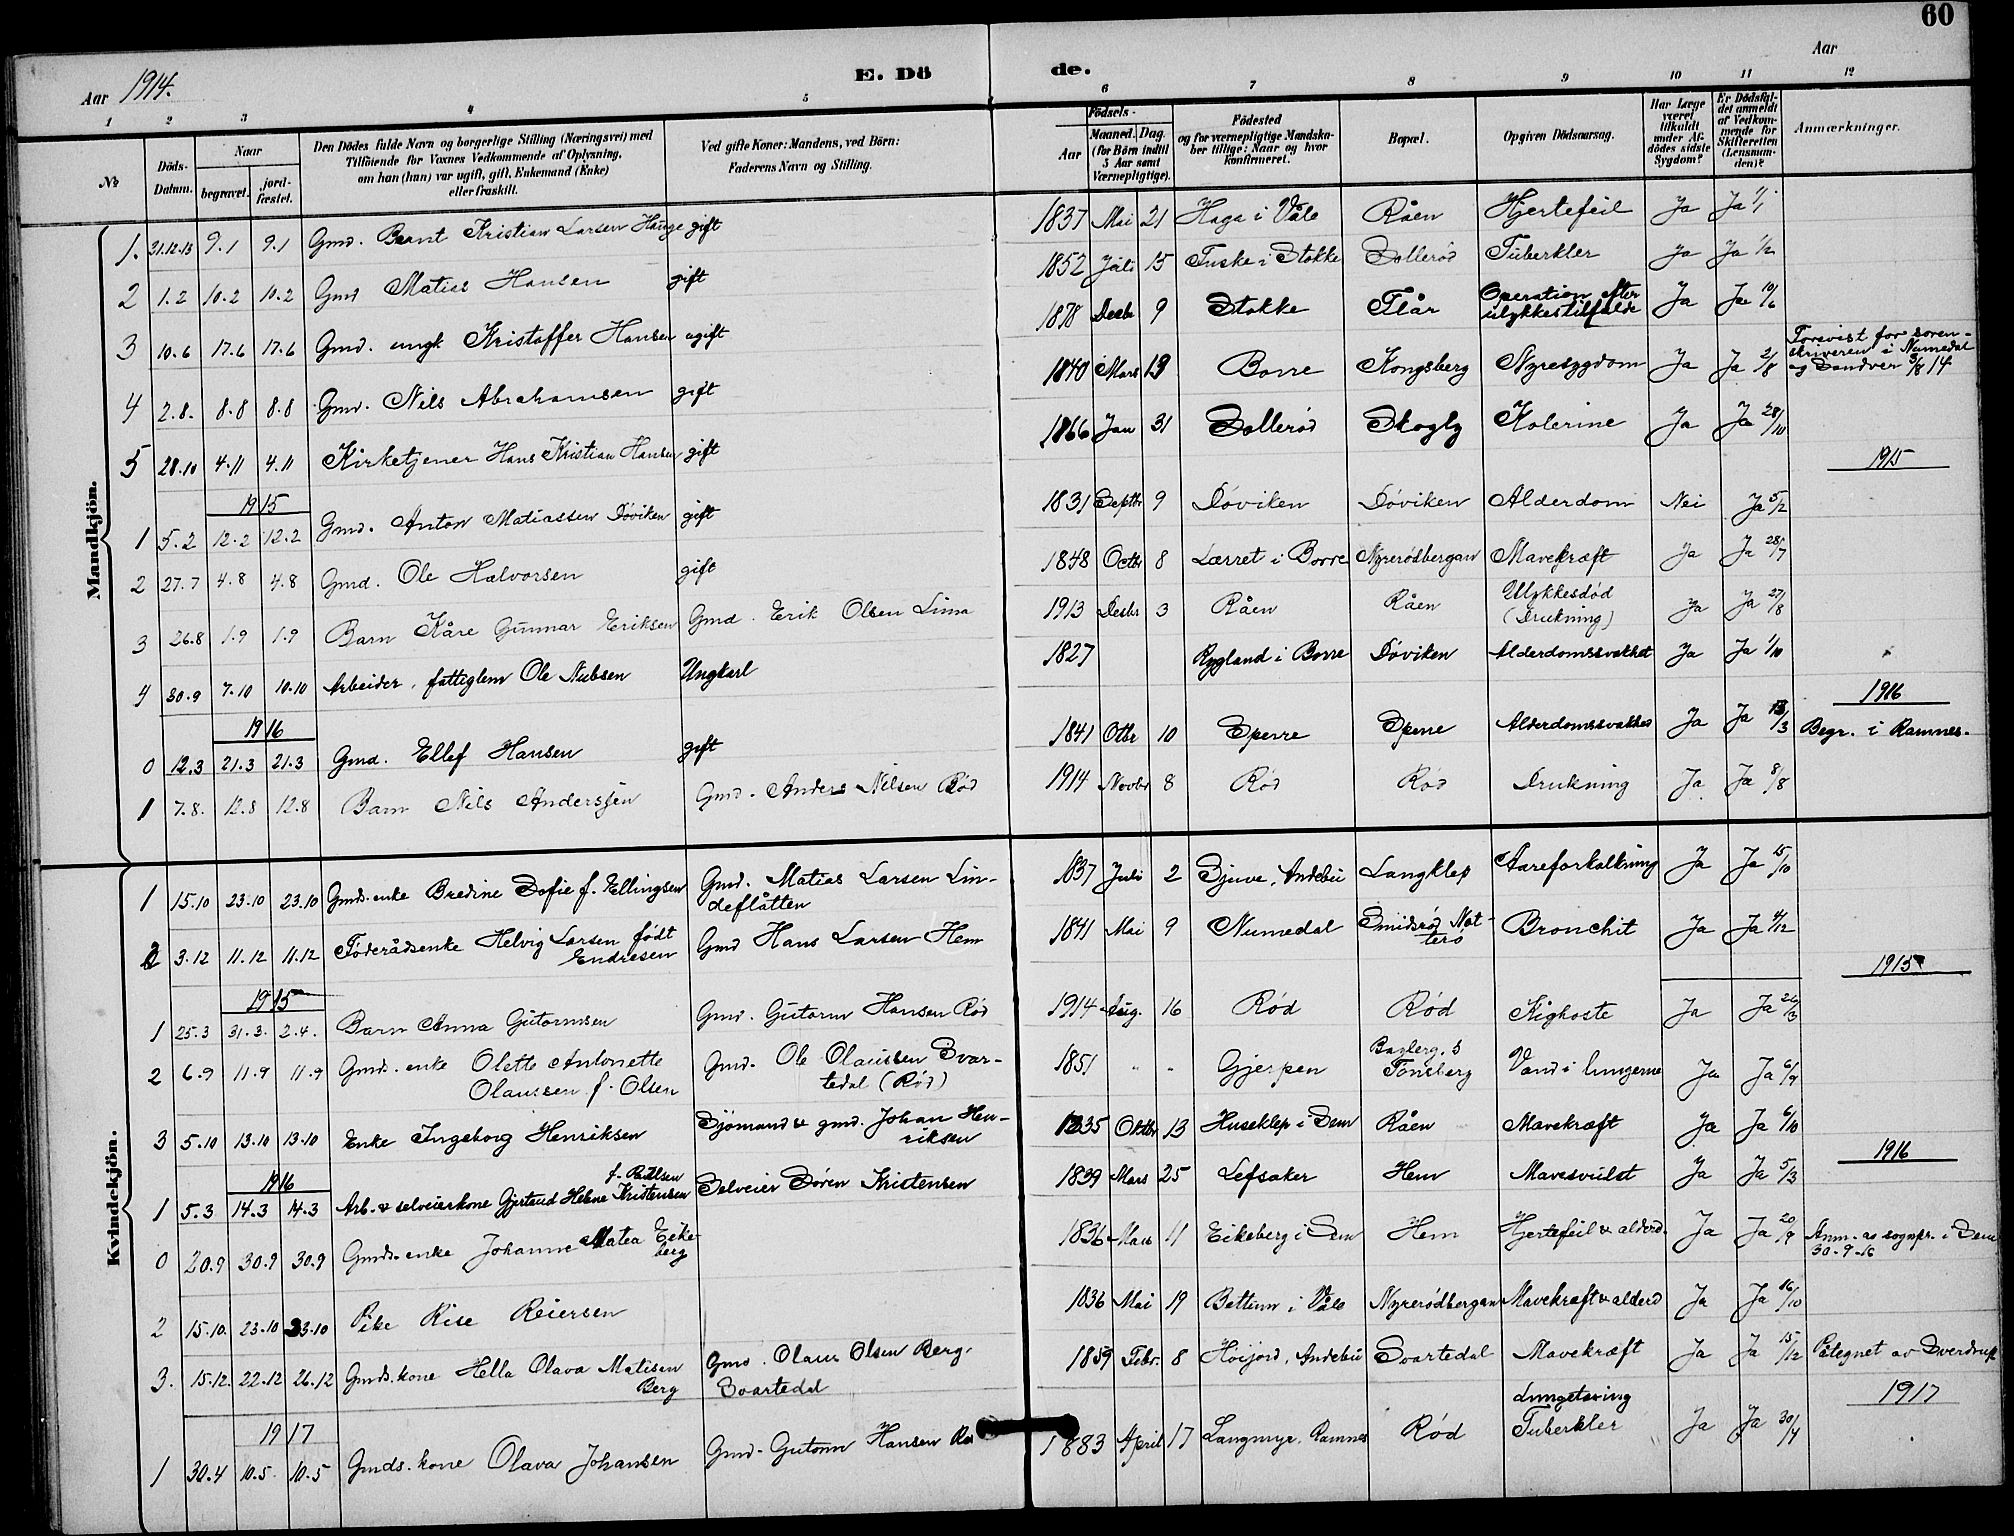 60
Aar 1914.
E. Dö de.
Aar
1 2 3 4 5 6 7 8 9 10 11 12
№
Döds-Datum.
Naar
begravet.
jord-fæstet.
Den Dödes fulde Navn og borgerlige Stilling (Næringsvei) med
Tilföiende for Voxnes Vedkommende af Oplysning,
om han (hun) var ugift, gift, Enkemand (Enke)
eller fraskilt.
Ved gifte Koner: Mandens, ved Börn:
Faderens Navn og Stilling.
Födsels-
Aar
Maaned. Dag.
(for Börn indtil 5 Aar samt Værnepligtige).
Födested
og for værnepligtige Mandskaber tillige: Naar og hvor konfirmeret.
Bopæl.
Opgiven Dödsaarsag.
Har Læge været tilkaldt under Afdödes sidste Sygdom?
Er Dödsfaldet anmeldt af Vedkommende for Skifteretten (Lensmanden)?
Anmærkninger.
Mandkjön.
1. 31.12.13 9.1 9.1 Gmd. Bernt Kristian Larsen Hauge gift 1837 Mai 21 Haga i Våle Råen Hjertefeil Ja Ja 1/1
2 1.2 10.2 10.2 Gmd Matias Hansen gift 1852 Juli 15 Fuske i Stokke Sollerød Tuberkler Ja Ja 1/2
3 10.6 17.6 17.6 Gmd. ungk Kristoffer Hansen ugift 1878 Desbr 9 Stokke Flår Operation efter ulykkestilfælde Ja Ja 10/6
4 2.8. 8.8 8.8 Gmd. Nils Abrahamsen gift 1840 Mars 13 Borre Kongsberg Nyresygdom Ja Ja 2/8 Forevist for sorenskriveren i Numedal og Sandsver 3/8 14
5 28.10 4.11 4.11 Kirketjener Hans Kristian Hansen gift 1866 Jan 31 Sollerød Skogly Kolerine Ja Ja 28/10
1915 1915
1 5.2 12.2 12.2 Gmd. Anton Matiassen Døviken gift 1831 Septbr 9 Døviken Døviken Alderdom Nei Ja 5/2
2 27.7 4.8 4.8 Gmd. Ole Halvorsen gift 1848 Octbr 8 Lerret i Borre Nyrerødbergan Mavekræft Ja Ja 28/7
3 26.8 1.9 1.9 Barn Kåre Gunnar Eriksen Gmd. Erik Olsen Lima 1913 Desbr 3 Råen Råen Ulykkesdød (Drukning) Ja Ja 27/8
4 30.9 7.10 10.10 Arbeider, fattiglem Ole Nubsen Ungkarl 1827 Rygland i Borre Døviken Alderdomssvakhet Ja Ja 1/10
1916 1916
0 12.3 21.3 21.3 Gmd. Ellef Hansen gift 1841 Otbr 10 Sperre Sperre Alderdomssvakhet Ja Ja 13/3 Begr. i Ramnes.
1 7.8. 12.8 12.8 Barn Nils Anderssen Gmd. Anders Nilsen Rød 1914 Novbr 8 Rød Rød Drukning Ja Ja 8/8
Kvindekjön.
1 15.10 23.10 23.10 Gmds.enke Bredine Sofie f. Ellingsen Gmd. Matias Larsen Lindeflåtten 1837 Juli 2 Sjuve, Andebu Langklep Aareforkalkning Ja Ja 15/10
2 3.12 11.12 11.12 Føderådsenke Helvig Larsen født Endresen Gmd Hans Larsen Hem 1841 Mai 9 Numedal Smidsrød Nøtterø Bronchit Ja Ja 4/12
1915 1915
1 25.3 31.3. 2.4. Barn Anna Gutormsen Gmd. Gutorm Hansen Rød 1914 Aug. 16 Rød Rød Kighoste Ja Ja 26/3
2 6.9 11.9 11.9 Gmds. enke Olette Antonette Olaussen f. Olsen Gmd. Ole Olaussen Svartedal (Rød) 1851 " " Gjerpen Tønsberg Vand i lungerne Ja Ja 6/9
3 5.10 13.10 13.10 Enke Ingeborg Henriksen Sjømand & gmd. Johan Henriksen 1835 Oktbr 13 Huseklep i Sem Råen Mavekræft Ja Ja 6/10
1916 1916
1 5.3 14.3 14.3 Arb. & selveierkone Gjertrud Helene Kristensen f. Paulsen Selveier Søren Kristensen 1839 Mars 25 Lefsaker Hem Mavesvulst Ja Ja 5/3
0 20.9 30.9 30.9 Gmds.enke Johanne Matea Eikeberg 1836 Mars 11 Eikeberg i Sem Hem Hjertefeil & alderd. Ja Ja 20/9 Anm. av sognpr. i Sem 30-9-16
2 15.10. 23.10 23.10 Pike Rise Reiersen 1836 Mai 19 Bettum i Våle Nyrerødbergan Mavekræft & alderd Ja Ja 16/10
3. 15.12. 22.12 26.12 Gmds.kone Hella Olava Matisen Berg Gmd. Olaus Olsen Berg. Svartedal 1859 Febr. 8 Høijord, Andebu Svartedal Mavekræft Ja Ja 15/12 Påtegnet av Sverdrup
1917 1917
1 30.4 10.5. 10.5 Gmds.kone Olava Johansen Gmd. Gutorm Hansen 1883 April 17 Langmyr, Ramnes Rød Lungetæring Tuberkler Ja Ja 30/4